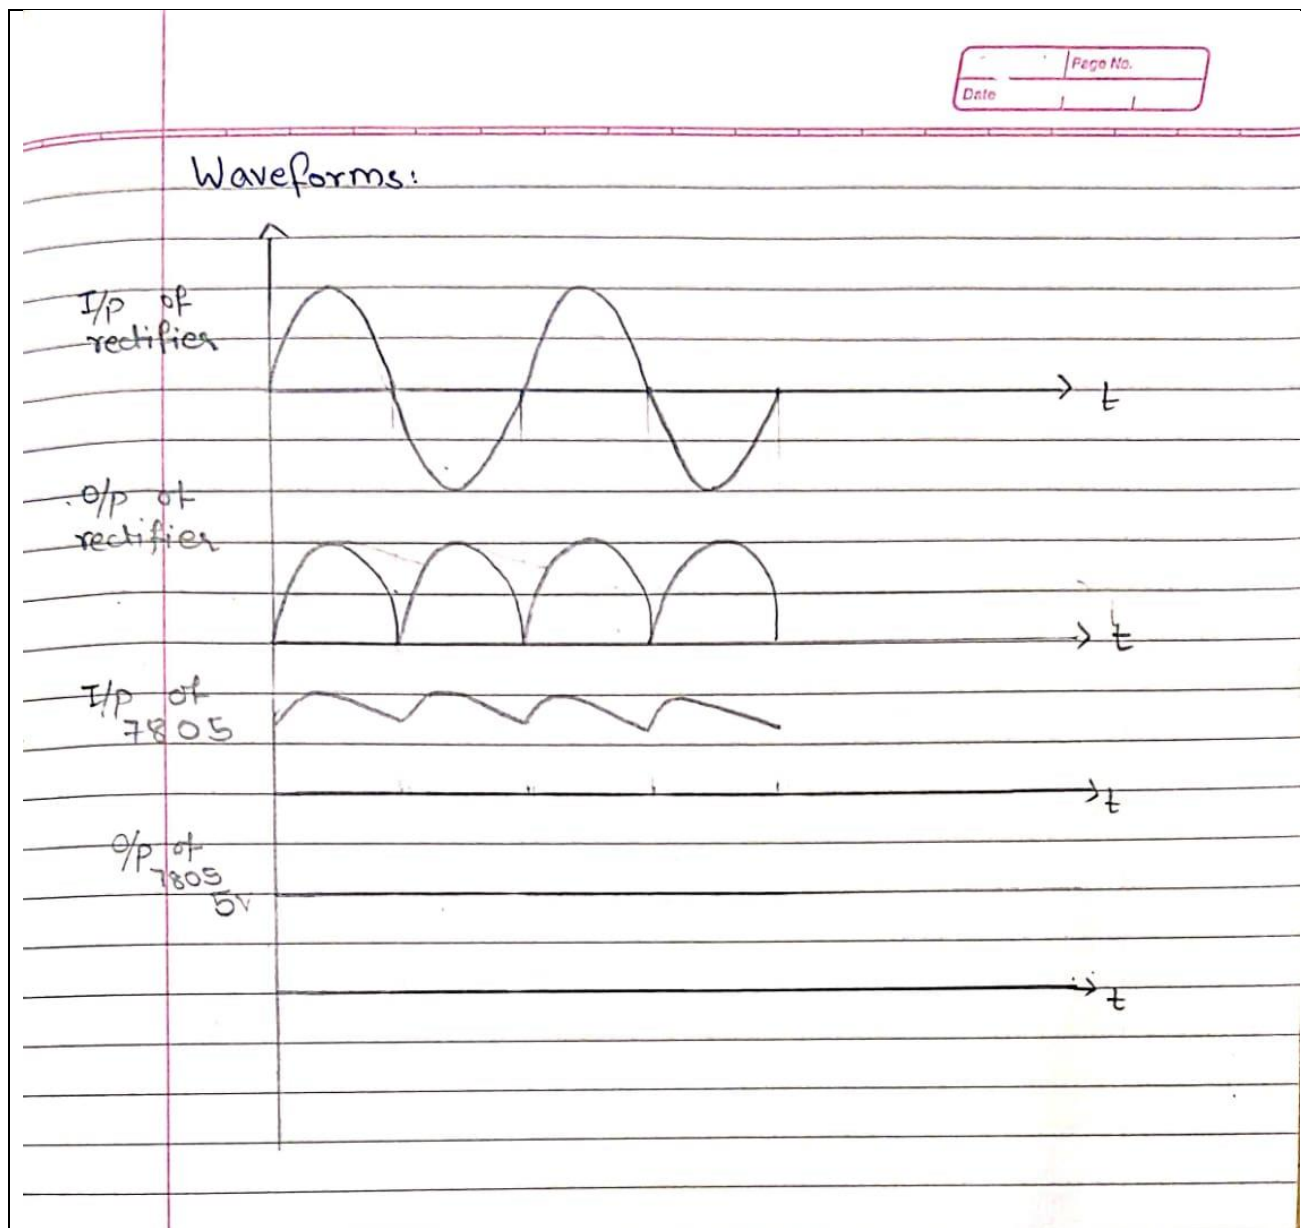 Page No.
Date
Waveforms:
I/p of
rectifier
t
O/p of
rectifier
t
I/p of
7805
t
O/p of
7805
5V
t